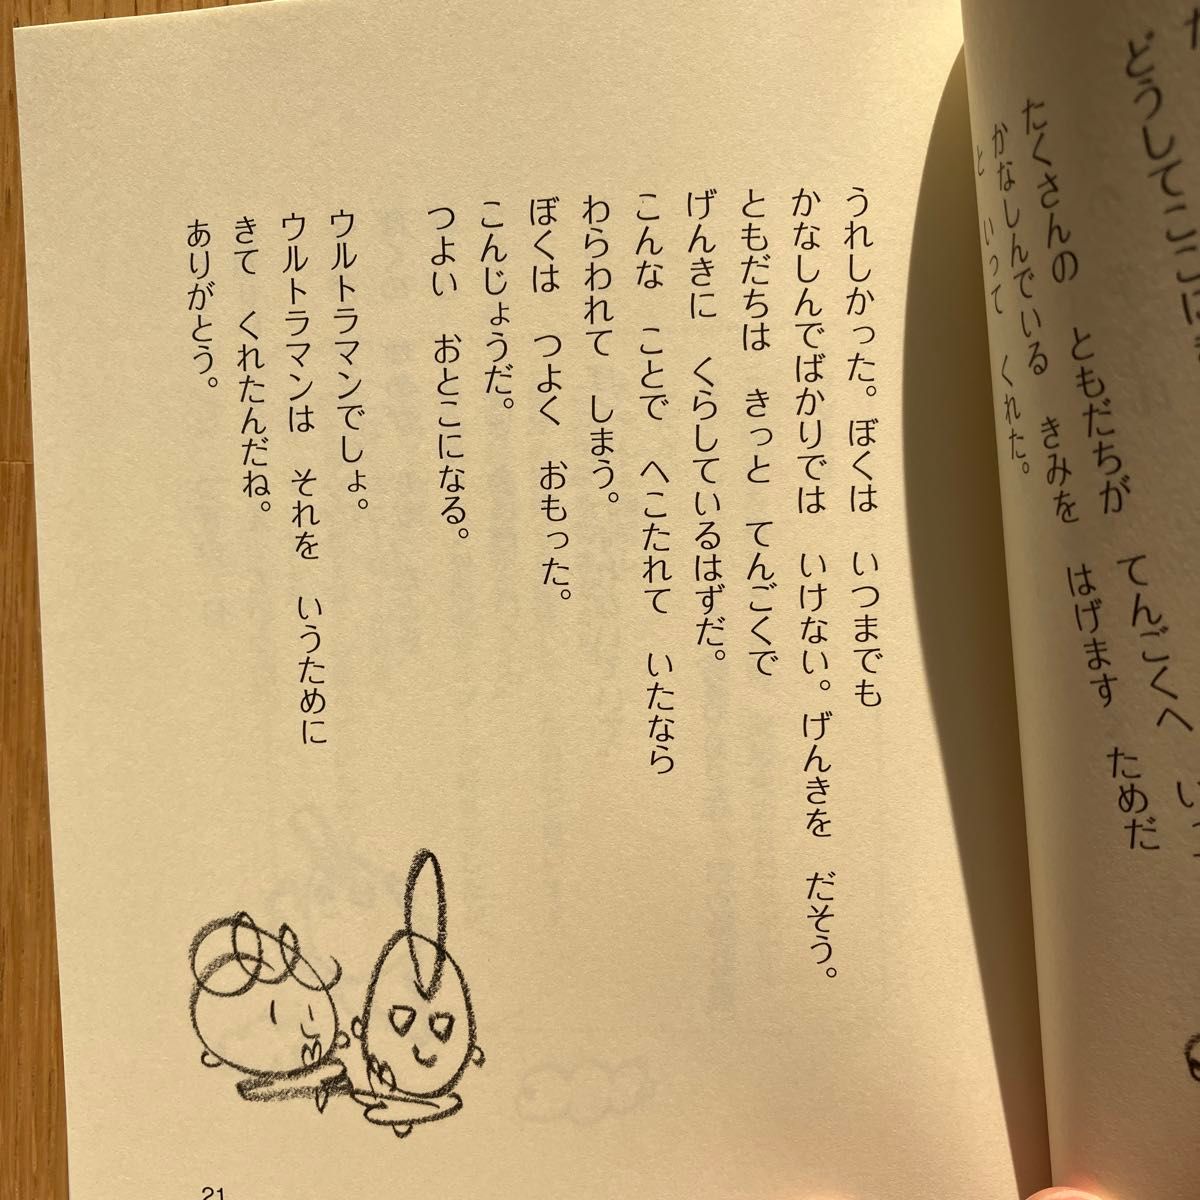 どうしてここに
たくさんの ともだちが てんごくへ
かなしんでいる きみを はげます ためだ
と いって くれた。
うれしかった。ぼくは いつまでも
かなしんでばかりでは いけない。げんきを だそう。
ともだちは きっと てんごくで
げんきに くらしているはずだ。
こんな ことで へこたれて いたなら
わらわれて しまう。
ぼくは つよく おもった。
こんじょうだ。
つよい おとこになる。
ウルトラマンでしょ。
ウルトラマンは それを いうために
きて くれたんだね。
ありがとう。
21